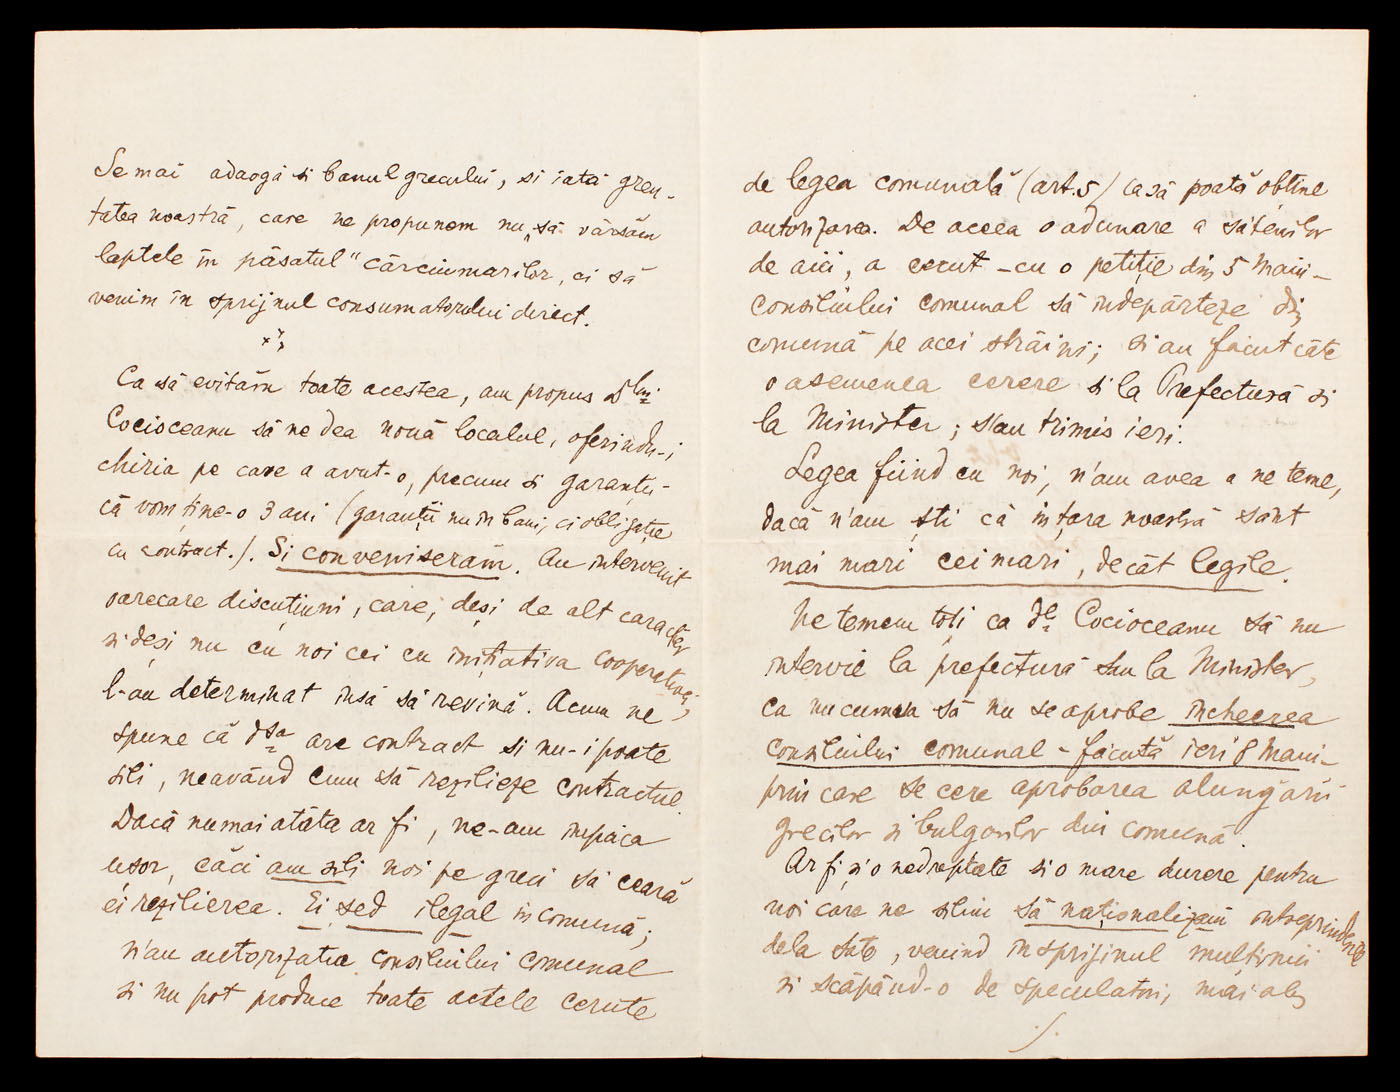 Se mai adaogă si banul grecului, si iată greu-
tatea noastră, care ne propunem nu „să vărsăm
laptele în păsatul" cârciumarilor, ci să
venim în sprijnul consumatorului direct.
Ca să evităm toate acestea, am propus Dlui
Cocioceanu să ne dea nouă localul, oferindu-i
chiria pe care a avut-o, precum si garanții
că vom ține-o 3 ani (garanții nu în bani, ci obligație
cu contract.). Si conveniserăm. Au intervenit
oarecare discuțiuni, care, deși de alt caracter
si deși nu cu noi cei cu inițiativa cooperativei,
l-au determinat însă să revină. Acum ne
spune că dsa are contract si nu-i poate
sili, neavând cum să rezilieze contractul.
Dacă numai atâta ar fi, ne-am împăca
usor, căci am sili noi pe greci să ceară
ei rezilierea. Ei sed ilegal în comună;
n'au autorizatia consiliului comunal
si nu pot produce toate actele cerute
de legea comunală (art. 5) ca să poată obtine
autorizarea. De aceea o adunare a sătenilor
de aici, a cerut - cu o petiție din 5 Maiu -
consiliului comunal să îndepărteze din
comună pe acei străini; si au făcut câte
o asemenea cerere si la Prefectură si
la Minister; s'au trimis ieri.
Legea fiind cu noi, n'am avea a ne teme,
dacă n'am ști că în țara noastră sânt
mai mari cei mari, decât legile.
Ne temem toți ca dl Cocioceanu să nu
intervie la prefectură sau la Minister,
ca nu cumva să nu se aprobe încheerea
consiliului comunal - făcută ieri 8 Maiu -
prin care se cere aprobarea alungării
grecilor si bulgarilor din comună.
Ar fi și o nedreptate si o mare durere pentru
noi care ne silim să naționalizăm întreprinderile
dela sate, venind in sprijinul mulțimii
si scăpând-o de speculatori, mai ales
./.